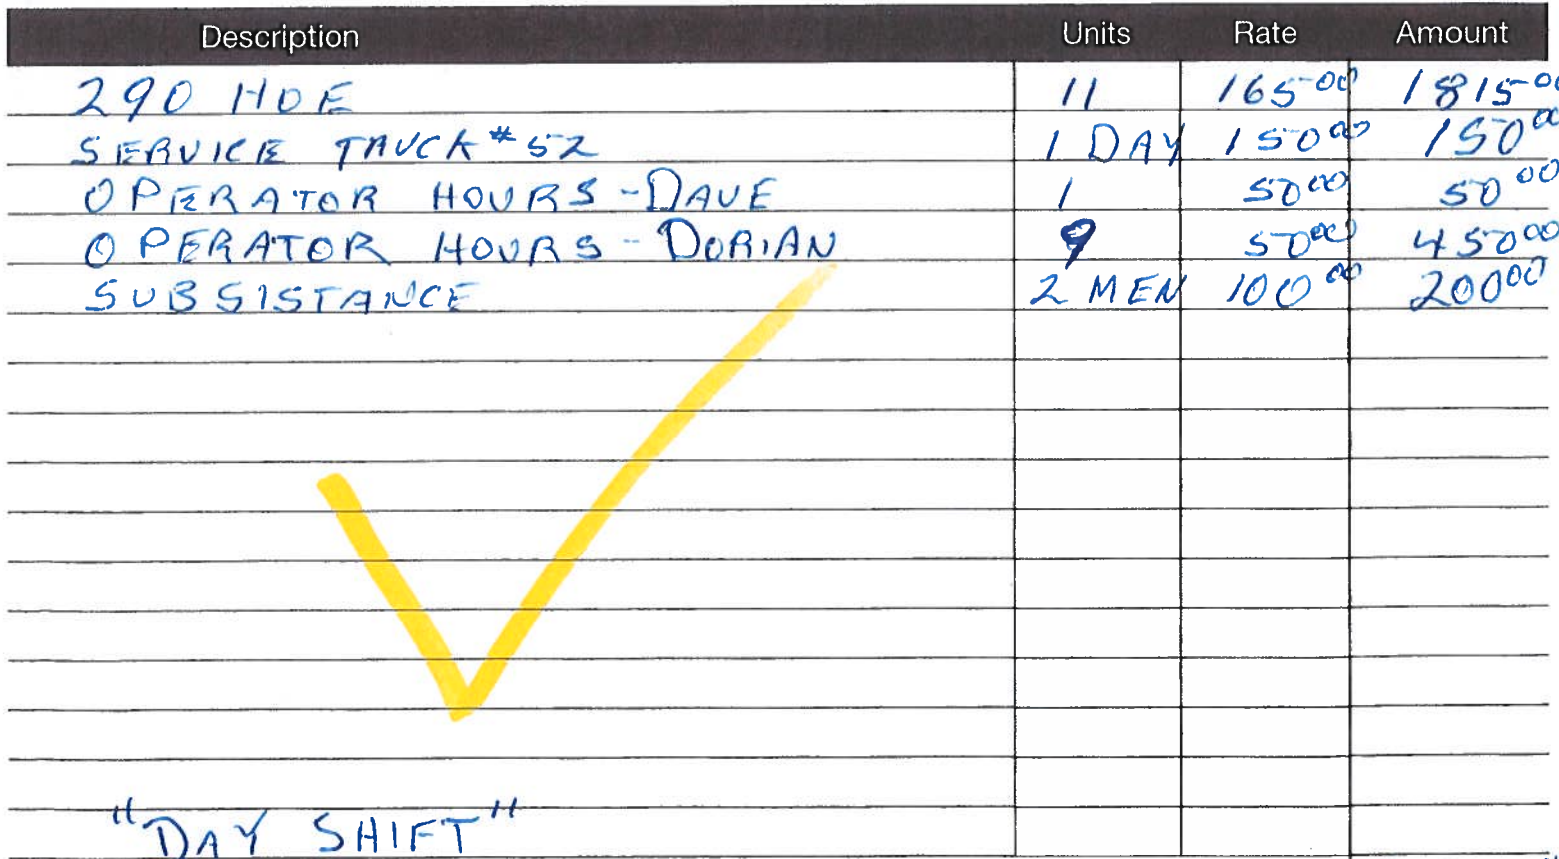 Description Units Rate Amount
290 HOE 11 165.00 1815.00
SERVICE TRUCK #52 1 DAY 150.00 150.00
OPERATOR HOURS - DAVE 1 50.00 50.00
OPERATOR HOURS - DORIAN 9 50.00 450.00
SUBSISTANCE 2 MEN 100.00 200.00
"DAY SHIFT"